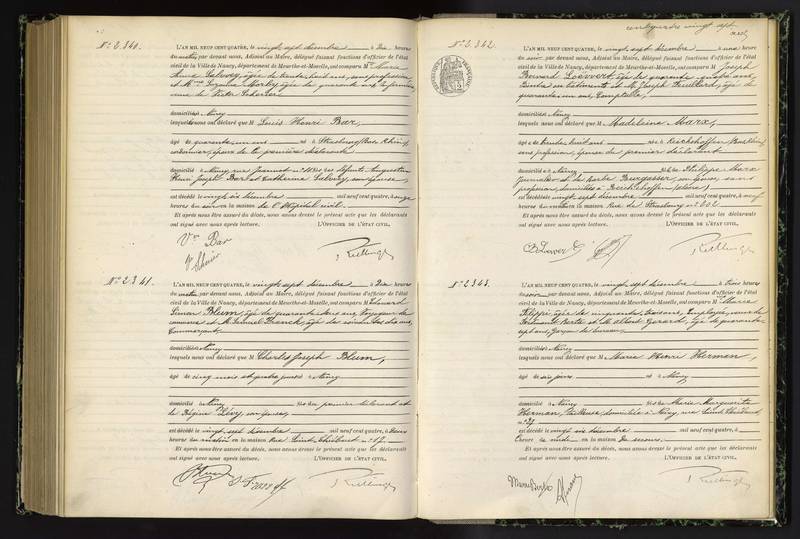 N° 2.340.
L'AN MIL NEUF CENT QUATRE, le vingt sept décembre à dix heures
du matin, par devant nous, Adjoint au Maire, délégué faisant fonctions d'officier de l'état
civil de la Ville de Nancy, département de Meurthe-et-Moselle, ont comparu M Marie
Anne Salvey, âgée de trente huit ans, sans profession,
et Mme
domiciliés Nancy
lesquels nous ont déclaré que M Louis Henri Bar,
âgé de quarante un ans né à Strasbourg (Bas Rhin),
époux de la première déclarante
domicilié à Nancy, rue Jeannot n° fils des défunts Augustin
Henri Joseph Bar et Catherine Salvey, son épouse,
est décédé le vingt six décembre mil neuf cent quatre, à onze
heures du soir en la maison de l'Hôpital civil.
Et après nous être assuré du décès, nous avons dressé le présent acte que les déclarants
ont signé avec nous après lecture. L'OFFICIER DE L'ÉTAT CIVIL,
Vve Bar
N° 2.341.
L'AN MIL NEUF CENT QUATRE, le vingt sept décembre à dix heures
du matin, par devant nous, Adjoint au Maire, délégué faisant fonctions d'officier de l'état
civil de la Ville de Nancy, département de Meurthe-et-Moselle, ont comparu M Edouard
Simon Blum, âgé de quarante deux ans, Voyageur de
commerce et M. Samuel Franck, âgé de soixante dix ans,
Commerçant,
domiciliés Nancy
lesquels nous ont déclaré que M Charles Joseph Blum,
âgé de cinq mois et quatre jours né à Nancy
domicilié à Nancy fils du premier déclarant et
de Régine Lévy, son épouse,
est décédé le vingt sept décembre mil neuf cent quatre, à deux
heures du matin en la maison rue Saint Thiébaut n° 17.
Et après nous être assuré du décès, nous avons dressé le présent acte que les déclarants
ont signé avec nous après lecture. L'OFFICIER DE L'ÉTAT CIVIL,
cent quatre vingt sept
N° 2.342.
L'AN MIL NEUF CENT QUATRE, le vingt sept décembre à une heure
du soir, par devant nous, Adjoint au Maire, délégué faisant fonctions d'officier de l'état
civil de la Ville de Nancy, département de Meurthe-et-Moselle, ont comparu M Joseph
Bernard Loewert, âgé de quarante quatre ans,
peintre en bâtiments et M. Joseph âgé de
quarante un ans, Comptable,
domiciliés Nancy
lesquels nous ont déclaré que M Madeleine Marx,
âgée de trente huit ans née à Reichshoffen (Bas Rhin),
sans profession, épouse du premier déclarant
domiciliée à Nancy fille de Philippe Marx
journalier et de Barbe Burgasser, son épouse, sans
profession, domiciliés à Reichshoffen (Alsace),
est décédée le vingt sept décembre mil neuf cent quatre, à neuf
heures du matin en la maison rue de Strasbourg n°
Et après nous être assuré du décès, nous avons dressé le présent acte que les déclarants
ont signé avec nous après lecture. L'OFFICIER DE L'ÉTAT CIVIL,
N° 2.343.
L'AN MIL NEUF CENT QUATRE, le vingt sept décembre à trois heures
du soir, par devant nous, Adjoint au Maire, délégué faisant fonctions d'officier de l'état
civil de la Ville de Nancy, département de Meurthe-et-Moselle, ont comparu M Marie
Filippi, âgée de cinquante trois ans, Employée, veuve de
et M. Albert Gérard, âgé de quarante
sept ans, Garçon de bureau,
domiciliés Nancy
lesquels nous ont déclaré que M Marie Henri Herman,
âgé de dix jours né à Nancy
domicilié à Nancy fils de Marie Marguerite
Herman, domiciliée à Nancy, rue Saint Thiébaut,
n° 27
est décédé le vingt six décembre mil neuf cent quatre, à
heure de midi en la maison de secours.
Et après nous être assuré du décès, nous avons dressé le présent acte que les déclarants
ont signé avec nous après lecture. L'OFFICIER DE L'ÉTAT CIVIL,